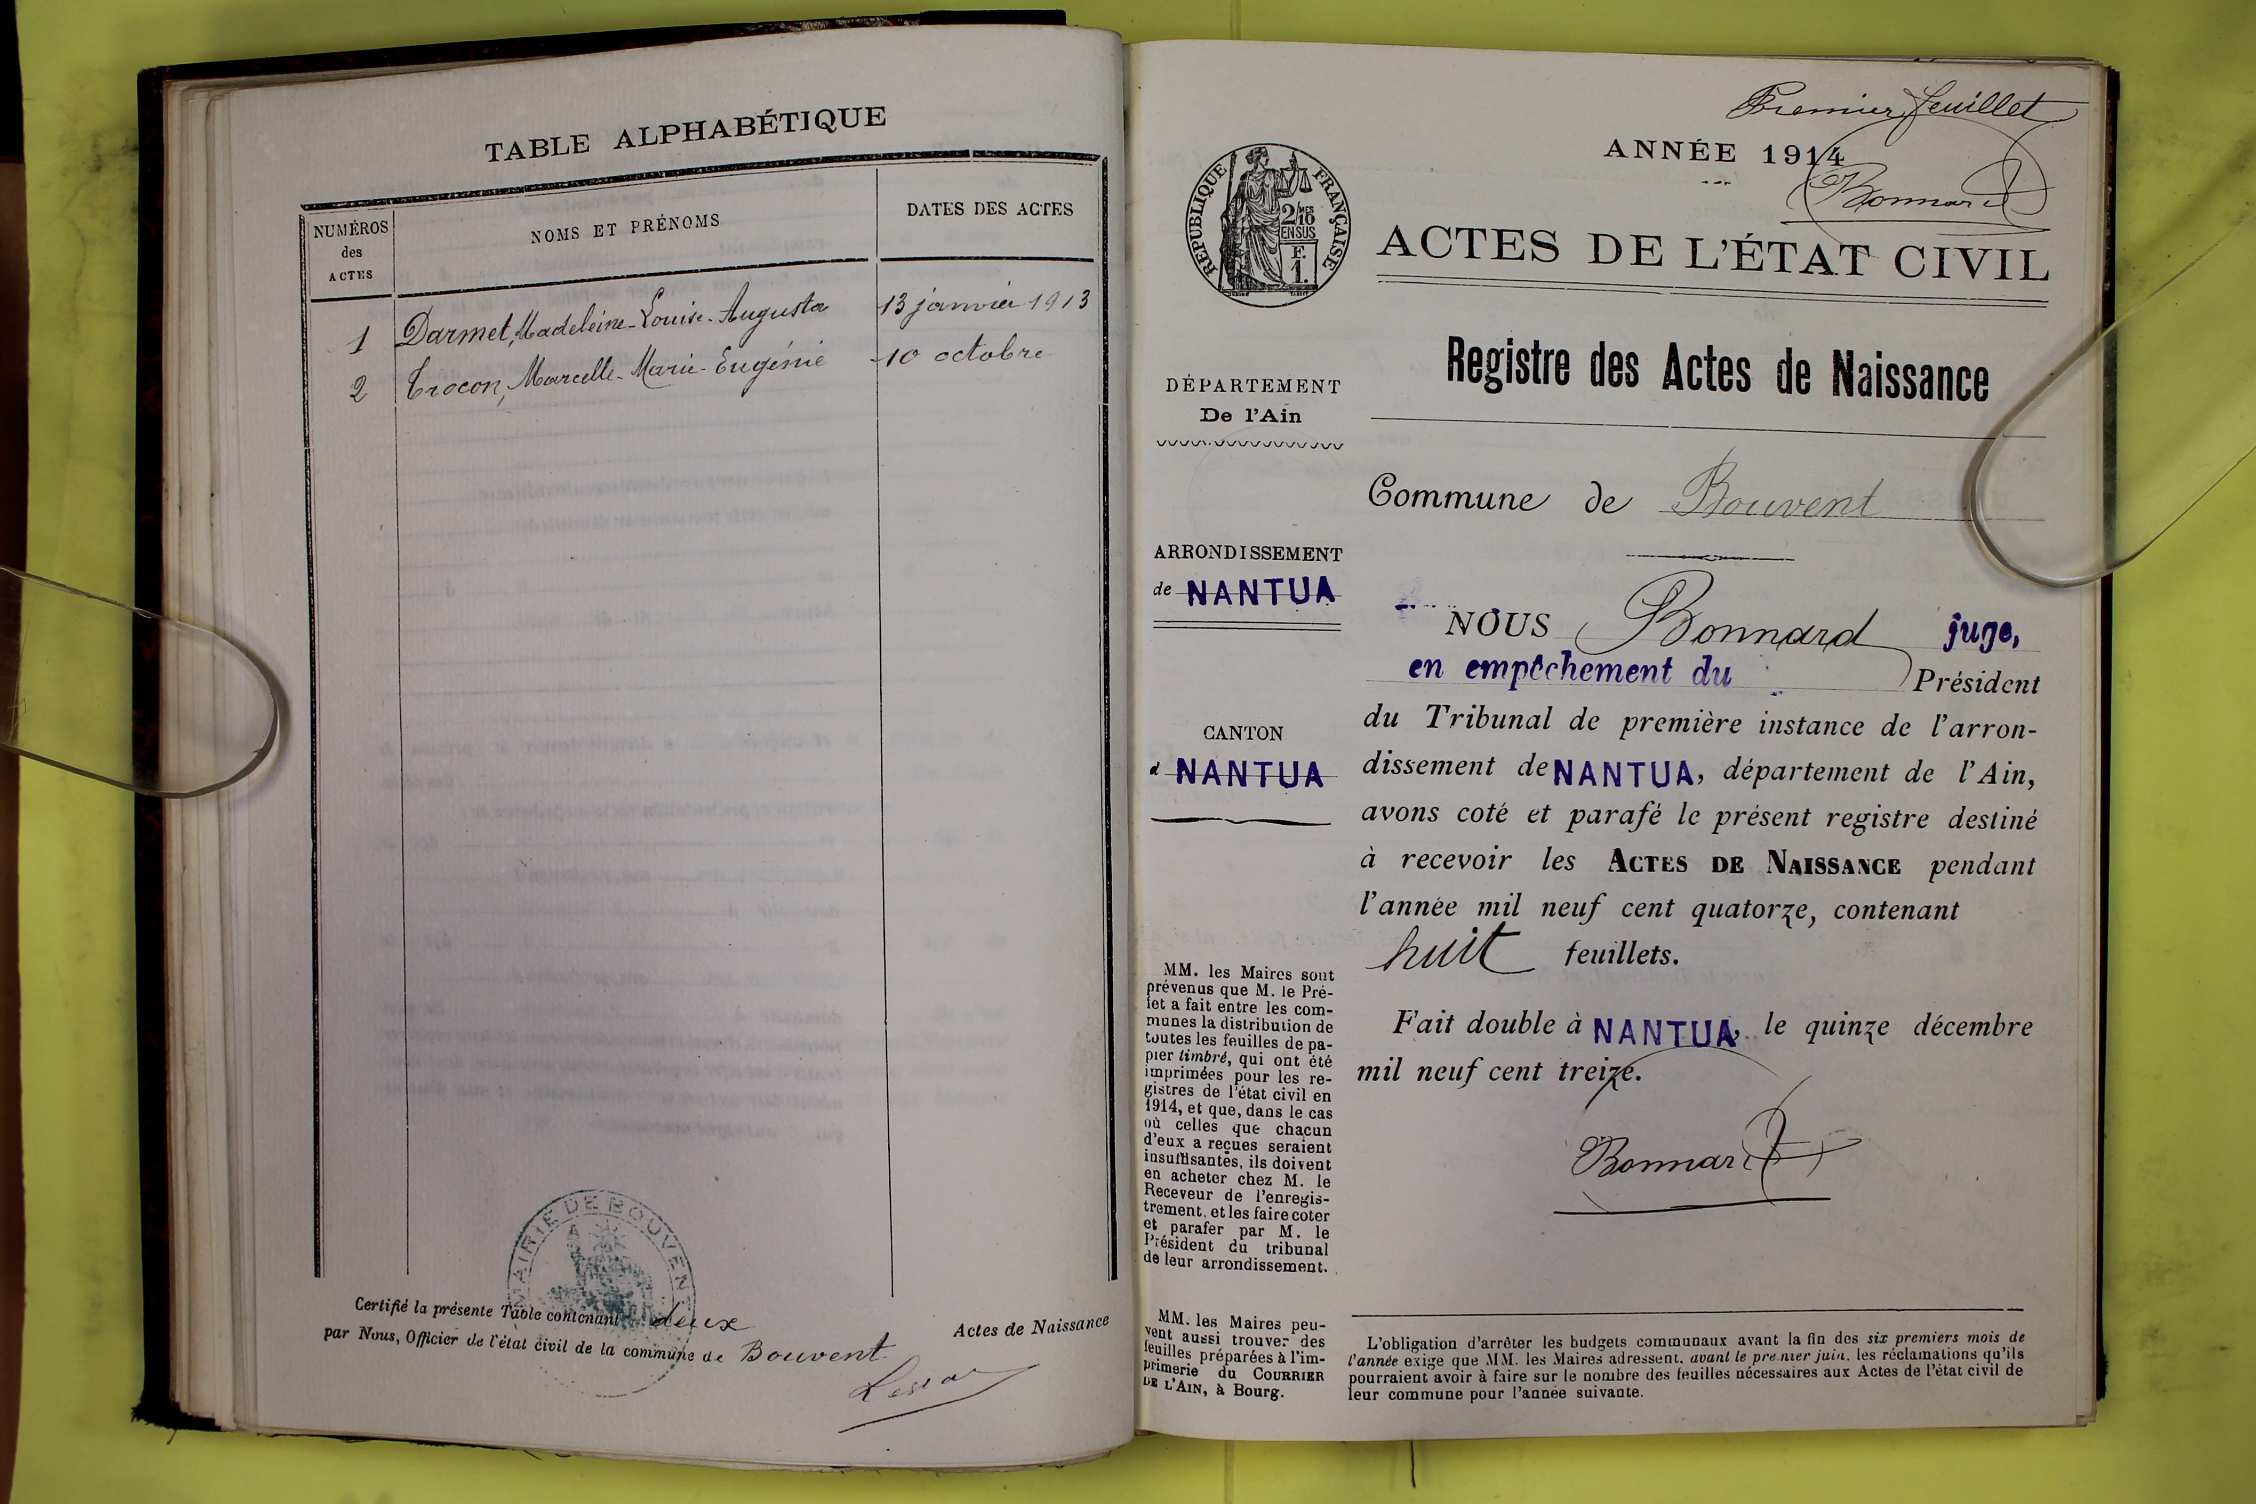 TABLE ALPHABÉTIQUE
NUMÉROS
des
ACTES
NOMS ET PRÉNOMS
DATES DES ACTES
1 Darmet, Madeleine-Louise-Augusta 13 janvier 1913
2 Crocon, Marcelle-Marie-Eugénie 10 octobre
MAIRIE DE BOUVENT
Certifié la présente Table contenant deux Actes de Naissance
par Nous, Officier de l'état civil de la commune de Bouvent
Premier feuillet
ANNÉE 1914
Bonnard
RÉPUBLIQUE FRANÇAISE
2/10 MES
EN SUS
F.
1.
ACTES DE L'ÉTAT CIVIL
Registre des Actes de Naissance
DÉPARTEMENT
De l'Ain
Commune de Bouvent
ARRONDISSEMENT
de NANTUA
CANTON
d NANTUA
NOUS Bonnard juge,
en empêchement du Président
du Tribunal de première instance de l'arron-
dissement de NANTUA, département de l'Ain,
avons coté et parafé le présent registre destiné
à recevoir les ACTES DE NAISSANCE pendant
l'année mil neuf cent quatorze, contenant
huit feuillets.
Fait double à NANTUA, le quinze décembre
mil neuf cent treize.
Bonnard
MM. les Maires sont
prévenus que M. le Pré-
fet a fait entre les com-
munes la distribution de
toutes les feuilles de pa-
pier timbré, qui ont été
imprimées pour les re-
gistres de l'état civil en
1914, et que, dans le cas
où celles que chacun
d'eux a reçues seraient
insuffisantes, ils doivent
en acheter chez M. le
Receveur de l'enregis-
trement, et les faire coter
et parafer par M. le
Président du tribunal
de leur arrondissement.
MM. les Maires peu-
vent aussi trouver des
feuilles préparées à l'im-
primerie du COURRIER
DE L'AIN, à Bourg.
L'obligation d'arrêter les budgets communaux avant la fin des six premiers mois de
l'année exige que MM. les Maires adressent, avant le premier juin, les réclamations qu'ils
pourraient avoir à faire sur le nombre des feuilles nécessaires aux Actes de l'état civil de
leur commune pour l'année suivante.